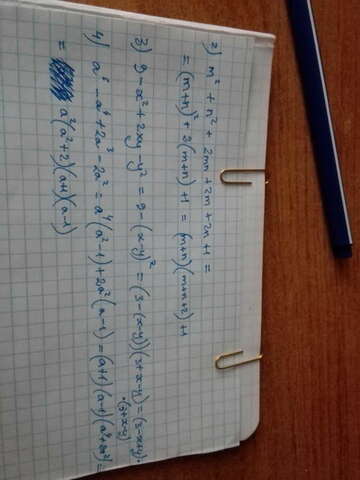 2) m² + n² + 2mn + 2m + 2n + 1 =
= (m+n)² + 2(m+n) + 1 = (m+n)(m+n+2) + 1
3) 9 - x² + 2xy - y² = 9 - (x-y)² = (3-(x-y))(3+x-y) = (3-x+y)·
·(3+x-y)
4) a⁶ - a⁴ + 2a³ - 2a² = a⁴(a²-1) + 2a²(a-1) = (a+1)(a-1)(a⁴+2a²) =
= a²(a²+2)(a+1)(a-1)